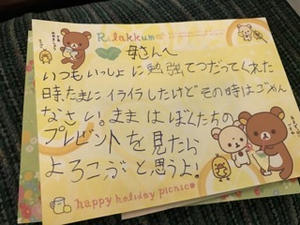 Rilakkuma
母さんへ
いつもいっしょに勉強てつだってくれた
時、たまにイライラしたけどその時はごめん
なさい。ままはぼくたちの
プレゼントを見たら
よろこぶと思うよ。
happy holiday picnic